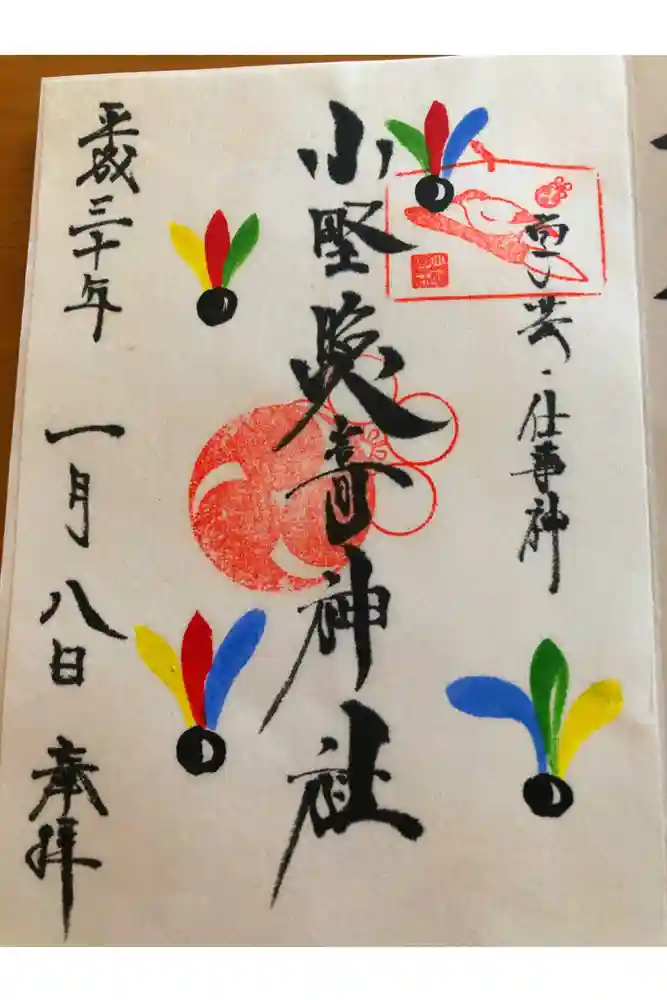 仕事神
小野照崎神社
平成三十年 一月八日 奉拝